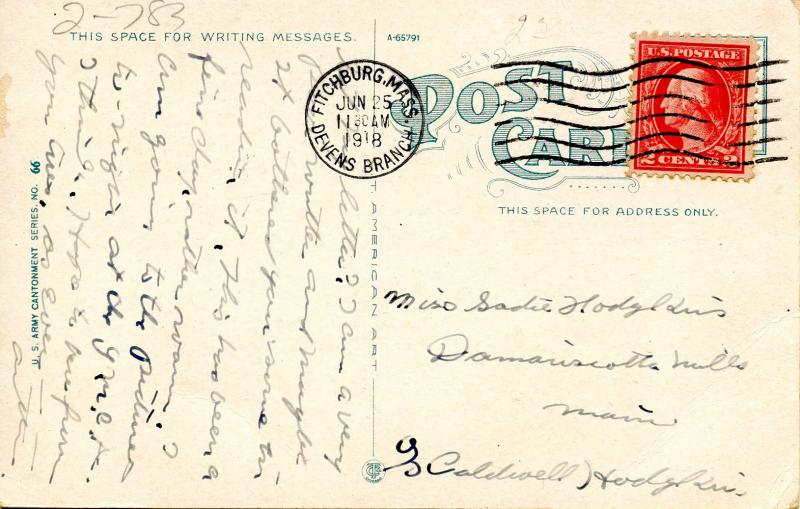 2-783
THIS SPACE FOR WRITING MESSAGES.
A-65791
POST CARD
U.S. POSTAGE
2 CENTS 2
FITCHBURG, MASS.
JUN 25
11 30 AM
1918
DEVENS BRANCH
THIS SPACE FOR ADDRESS ONLY.
letter? I am a very
writer and maybe
it bothered you some in
reading it, this has been a
fine day, rather warm I
am going to the pictures
to-night at the Y.M.C.A.
I think, Hope to hear from
you soon, as ever
U. S. ARMY CANTONMENT SERIES. NO. 66
T AMERICAN ART
Miss Sadie Hodgkins
Damariscotta Mills
Main
% Caldwell Hodgkins